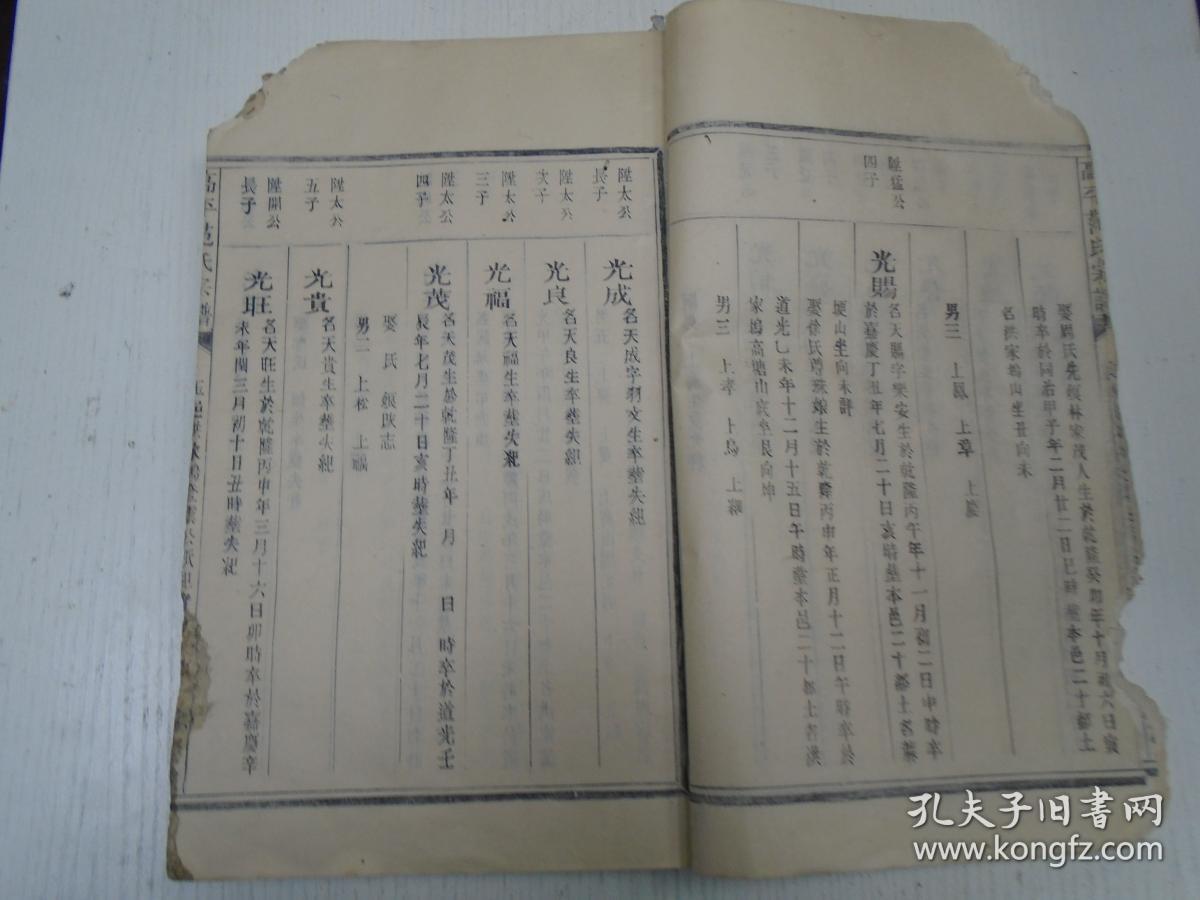 娶顧氏先娘林家茂人生於乾隆癸卯年十月初六日寅
時卒於同治甲子年二月廿二日巳時塟本邑二十都土
名洪家塢山坐丑向未
男三 上鳳 上章 上慶
陞猛公
四子
光賜
名天賜字樂安生於乾隆丙午年十一月初二日申時卒
於嘉慶丁丑年七月二十日亥時塟本邑二十都土名葉
山坐向未詳
娶徐氏尊珠娘生於乾隆丙申年正月十二日午時卒於
道光乙未年十二月十五日午時塟本邑二十都土名洪
家塢高塘山坐艮向坤
男三 上孝
陞太公
長子
光成
名天成字羽文生卒塟失紀
陞太公
次子
光良
名天良生卒塟失紀
陞太公
三子
光福
名天福生卒塟失紀
陞太公
四子
光茂
名天茂生於乾隆丁丑年 月 日 時卒於道光壬
辰年七月二十日亥時塟失紀
娶 氏 娘缺志
男二 上松
陞太公
五子
光貴
名天貴生卒塟失紀
陞開公
長子
光旺
名天旺生於乾隆丙申年三月十六日卯時卒於嘉慶辛
未年閏三月初十日丑時塟失紀
孔夫子旧书网
www.kongfz.com